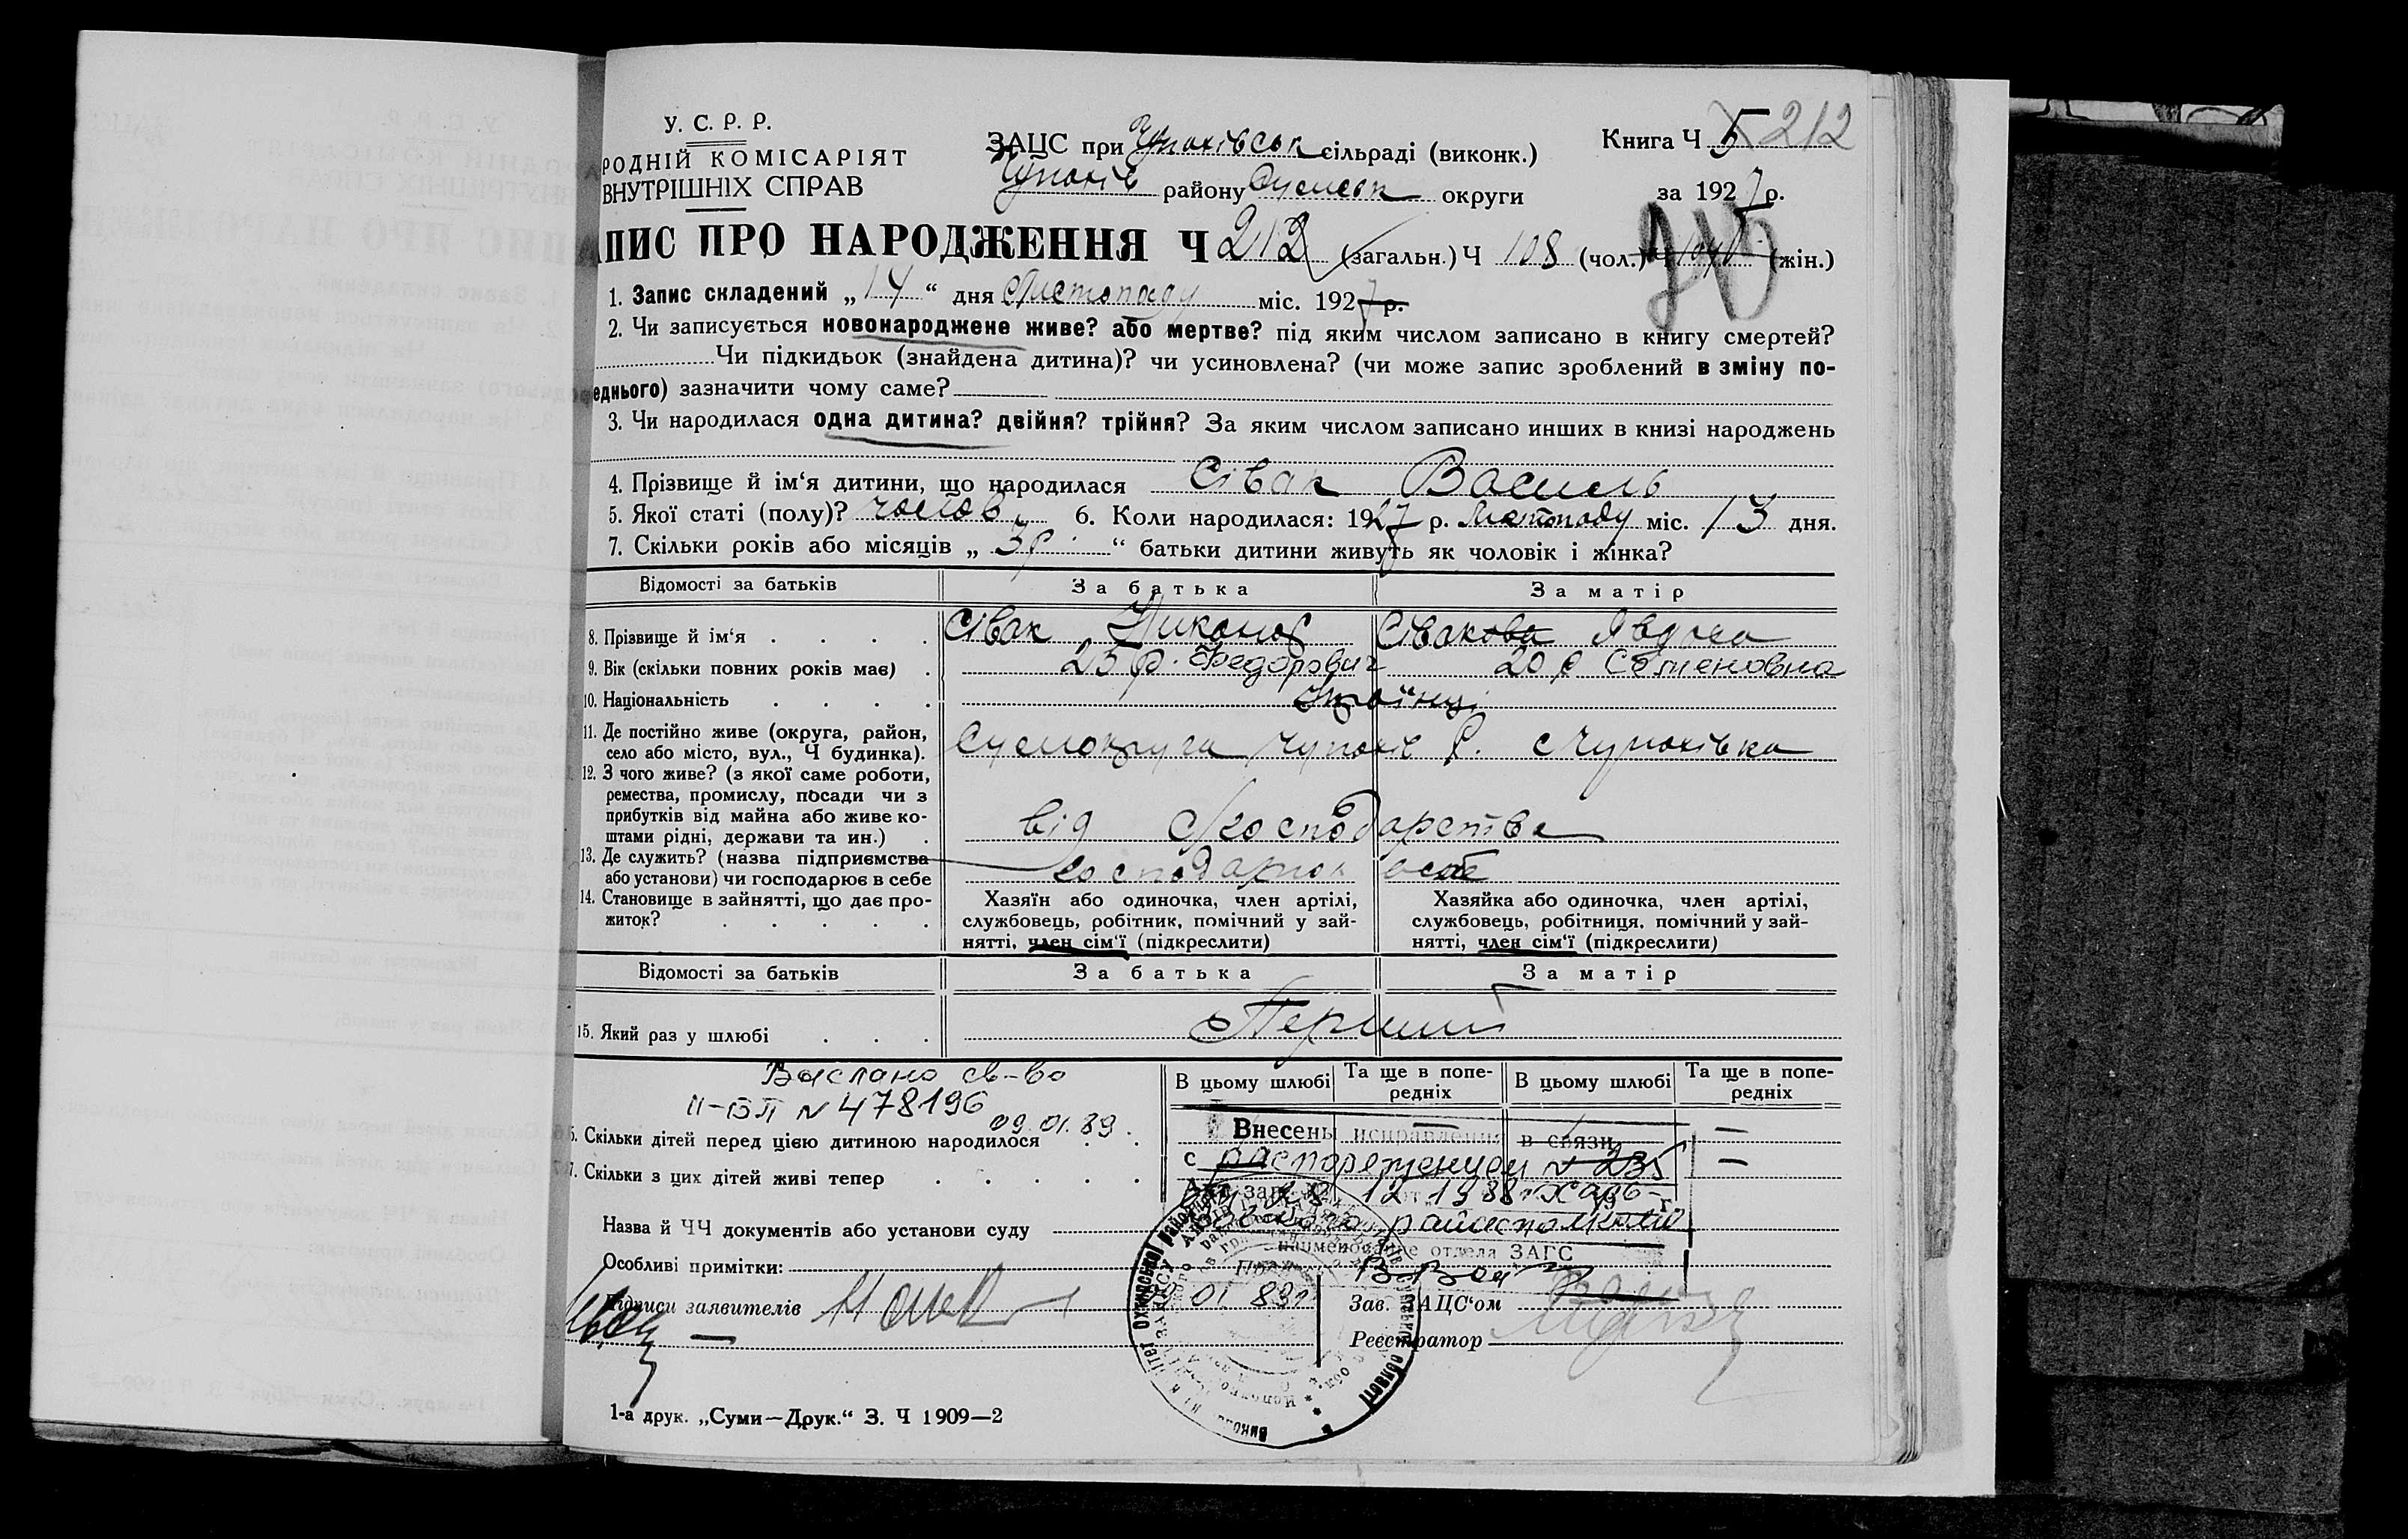 У. С. Р. Р.
РОДНІЙ КОМІСАРІЯТ
ВНУТРІШНІХ СПРАВ
ЗАЦС при Чупахівськ сільраді (виконк.)
Чупахів району Сумськ округи
Книга Ч 5 212
за 1927 р.
ПИС ПРО НАРОДЖЕННЯ Ч 212 (загальн.) Ч 108 (чол.) Ч (жін.)
1. Запис складений „14“ дня Листопаду міс. 1927 р.
2. Чи записується новонароджене живе? або мертве? під яким числом записано в книгу смертей?
Чи підкидьок (знайдена дитина)? чи усиновлена? (чи може запис зроблений в зміну по-
еднього) зазначити чому саме?
3. Чи народилася одна дитина? двійня? трійня? За яким числом записано инших в книзі народжень
4. Прізвище й ім‘я дитини, що народилася Сівак Василь
5. Якої статі (полу)? чолов 6. Коли народилася: 1927 р. Листопаду міс. 13 дня.
7. Скільки років або місяців „3р“ батьки дитини живуть як чоловік і жінка?
Відомості за батьків За батька За матір
8. Прізвище й ім‘я Сівак Никонор Сівакова Явдоха
9. Вік (скільки повних років має) 25 р. Федорович 20 р Семеновна
10. Національність Українці
11. Де постійно живе (округа, район,
село або місто, вул., Ч будинка). Сумокруга Чупахів р. с Чупахівка
12. З чого живе? (з якої саме роботи,
ремества, промислу, посади чи з
прибутків від майна або живе ко-
штами рідні, держави та ин.) від с/господарства
13. Де служить? (назва підприємства
або установи) чи господарює в себе
14. Становище в зайнятті, що дає про-
житок?
Хазяїн або одиночка, член артілі,
службовець, робітник, помічний у зай-
нятті, член сім‘ї (підкреслити)
Хазяйка або одиночка, член артілі,
службовець, робітниця, помічний у зай-
нятті, член сім‘ї (підкреслити)
Відомості за батьків За батька За матір
15. Який раз у шлюбі Перший
Выслано св-во
II-БП N 478196
09.01.89.
В цьому шлюбі Та ще в попе-
редніх В цьому шлюбі Та ще в попе-
редніх
Скільки дітей перед цією дитиною народилося
Скільки з цих дітей живі тепер
Внесены исправления в связи
с распоряжением N 235
12 1988г Харь-
райисполкома
наименование отдела ЗАГС
01 89г
Назва й ЧЧ документів або установи суду
Особливі примітки:
Підписи заявителів
Зав. ЗАЦС‘ом
Реєстратор
1-а друк. „Суми—Друк.“ З. Ч 1909—2